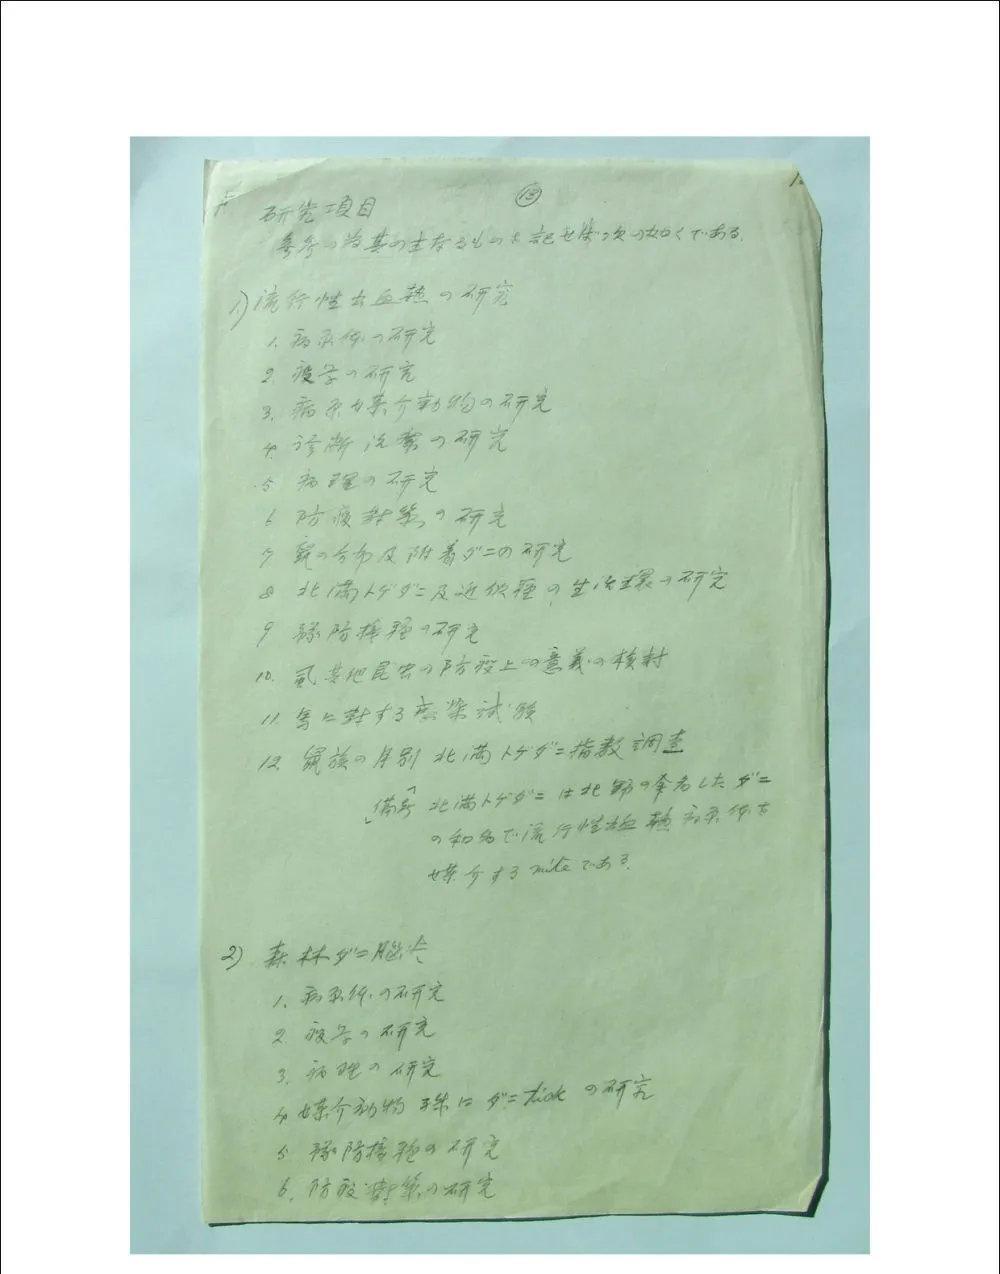 ⑬
研究項目
参考の為其の主なるものを記せば次の如くである。
1) 流行性出血熱の研究
1. 病原体の研究
2. 疫学の研究
3. 病原媒介動物の研究
4. 診断治療の研究
5. 病理の研究
6. 防疫対策の研究
7. 鼠の分布及附着ダニの研究
8. 北満トゲダニ及近似種の生活環の研究
9. 予防接種の研究
10. 虱其他昆虫の防疫上の意義の検討
11. 馬に対する感染試験
12. 鼠族の月別北満トゲダニ指数調査
備考 北満トゲダニは北野の命名したダニ
の和名で流行性出血熱病原体を
媒介するmiteである。
2) 森林ダニ脳炎
1. 病原体の研究
2. 疫学の研究
3. 病理の研究
4. 媒介動物殊にダニtickの研究
5. 予防接種の研究
6. 防疫対策の研究